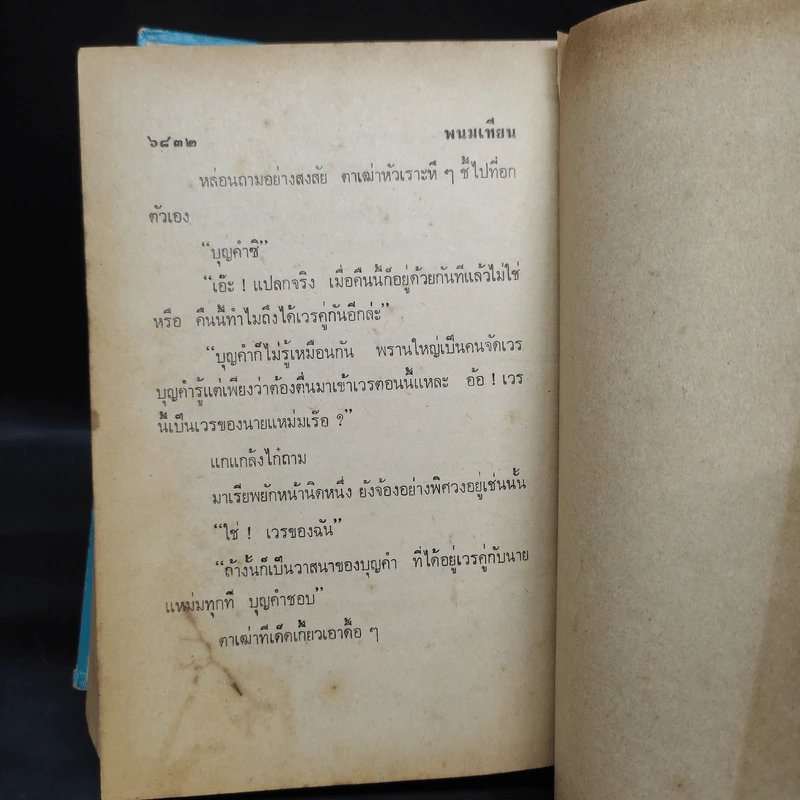 ๖๘๓๒ พนมเทียน
หล่อนถามอย่างสงสัย ตาเฒ่าหัวเราะหึ ๆ ชี้ไปที่อก
ตัวเอง
“บุญคำซิ”
“เอ๊ะ ! แปลกจริง เมื่อคืนนี้ก็อยู่ด้วยกันทีแล้วไม่ใช่
หรือ คืนนี้ทำไมถึงได้เวรคู่กันอีกล่ะ”
“บุญคำก็ไม่รู้เหมือนกัน พรานใหญ่เป็นคนจัดเวร
บุญคำรู้แต่เพียงว่าต้องตื่นมาเข้าเวรตอนนี้แหละ อ้อ ! เวร
นี้เป็นเวรของนายแหม่มเร๊อ ?”
แกแกล้งไก๋ถาม
มาเรียพยักหน้านิดหนึ่ง ยังจ้องอย่างพิศวงอยู่เช่นนั้น
“ใช่ ! เวรของฉัน”
“ถ้างั้นก็เป็นวาสนาของบุญคำ ที่ได้อยู่เวรคู่กับนาย
แหม่มทุกที บุญคำชอบ”
ตาเฒ่าทีเด็ดเกี้ยวเอาดื้อ ๆ